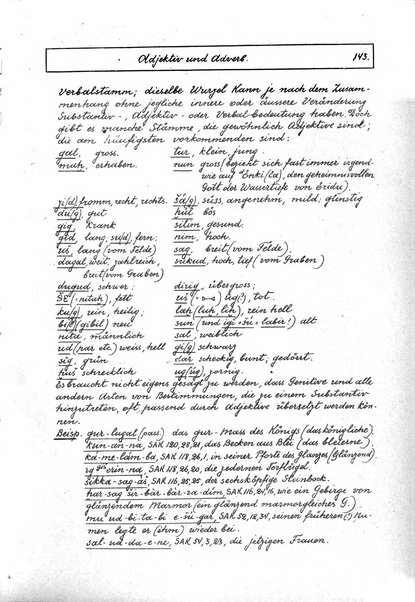 Adjektiv und Adverb. 143.
Verbalstamm; dieselbe Wurzel kann je nach dem Zusam-
menhang ohne jegliche innere oder äussere Veränderung
Substantiv-, Adjektiv- oder Verbal-bedeutung haben. Noch
gibt es manche Stämme, die gewöhnlich Adjektive sind;
die am häufigsten vorkommenden sind:
gal, gross. tur, klein, jung.
mah, erhaben. nun gross (bezieht sich fast immer irgend-
wie auf Enki(Ea), den geheimnisvollen
Gott der Wassertiefe von Eridu).
zi(d) fromm, recht, rechts. šá(g), süss, angenehm, mild; günstig
du(g), gut hul bös
gig, krank silim gesund.
gíd, lang, su(d), fern; nim, hoch.
uš, lang (vom Felde), sag, breit (vom Felde),
dagal, weit, zahlreich, sukud, hoch, tief (vom Graben)
breit (vom Graben)
dugud, schwer; dirig, übergross;
ŠE (:nitah), fett úš ug(?), tot.
ku(g), rein, heilig; lah (luh, lih), rein hell
bi(l) (gibil) neu sun (und labir?) alt
nita, männlich sal, weiblich
ud (par etc.), weiss, hell gi(g) schwarz
sig, grün dar scheckig, bunt, gedörrt.
huš schrecklich ug(ug), zornig.
Es braucht nicht eigens gesagt zu werden, dass Genitive und alle
andern Arten von Bestimmungen, die zu einem Substantiv
hinzutreten, oft passend durch Adjektive übersetzt werden kön-
nen.
Beisp. gur-lugal (pas.) das gur-Mass des Königs (das königliche).
kun-an-na, SAK 120, 28, 21, das Becken aus Blei (das bleierne).
ka-me-lám-ba, SAK 118, 26, 1, in seiner Pforte des Glanzes (glänzend)
erin-na, SAK 118, 26, 20, die zedernen Torflügel.
šikka-sag-áš, SAK 116, 25, 25, der sechsköpfige Steinbock.
har-sag šir-bár-bár-ra-dím, SAK 116, 24, 16, wie ein Gebirge von
glänzendem Marmor (ein glänzend marmorgleiches G.)
mu ud-bi-ta-bi e-šú-gar, SAK 52, 12, 34, seinen früheren Na-
men legte er (ihm) wieder bei.
sal-ud-da-e-ne, SAK 54, 3, 23, die jetzigen Frauen.